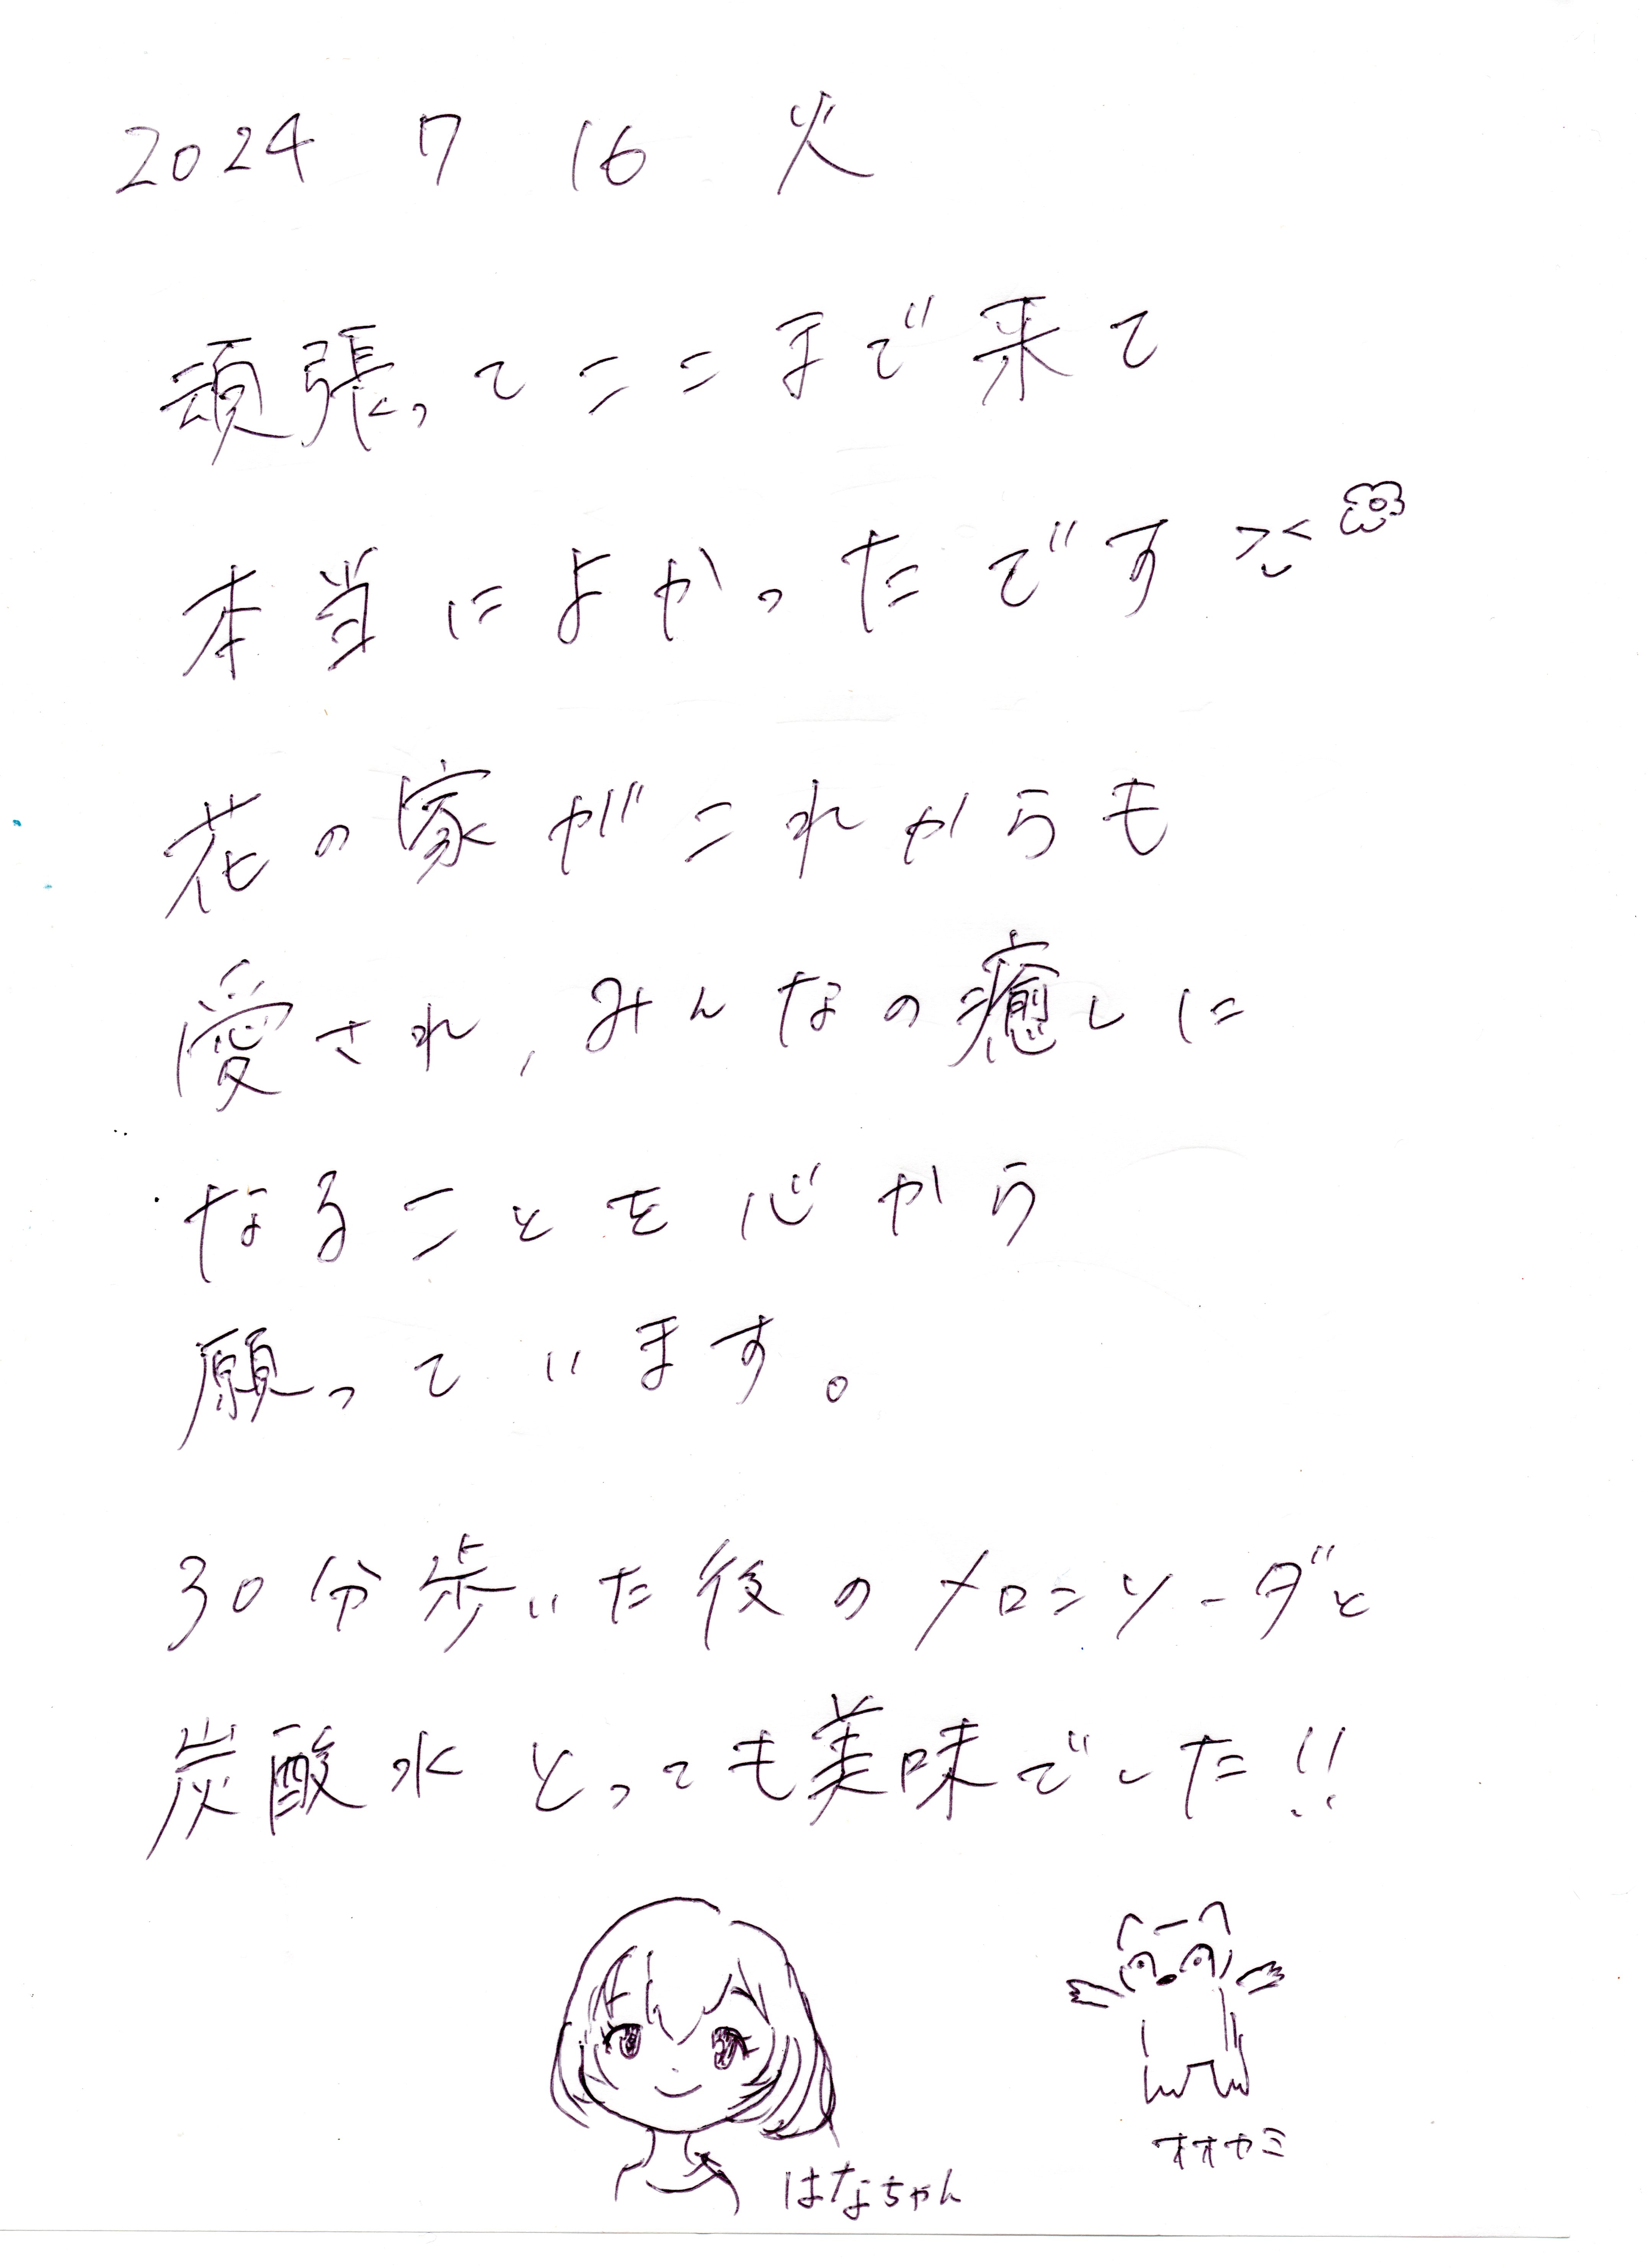 2024 7 16 火
頑張ってここまで来て
本当によかったです
花の家がこれからも
愛され、みんなの癒しに
なることを心から
願っています。
30分歩いた後のメロンソーダと
炭酸水とっても美味でした!!
はなちゃん
オオカミ